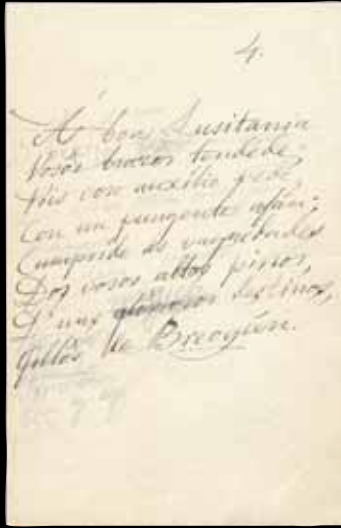 4.
A' boa Lusitania
Vosos brazos tendede,
Pois voso auxilio pede,
Con un pungente afán;
Cumpride as vaguedades
Dos vosos altos pinos,
D'uns gloriosos destinos,
Fillos de Breogán.